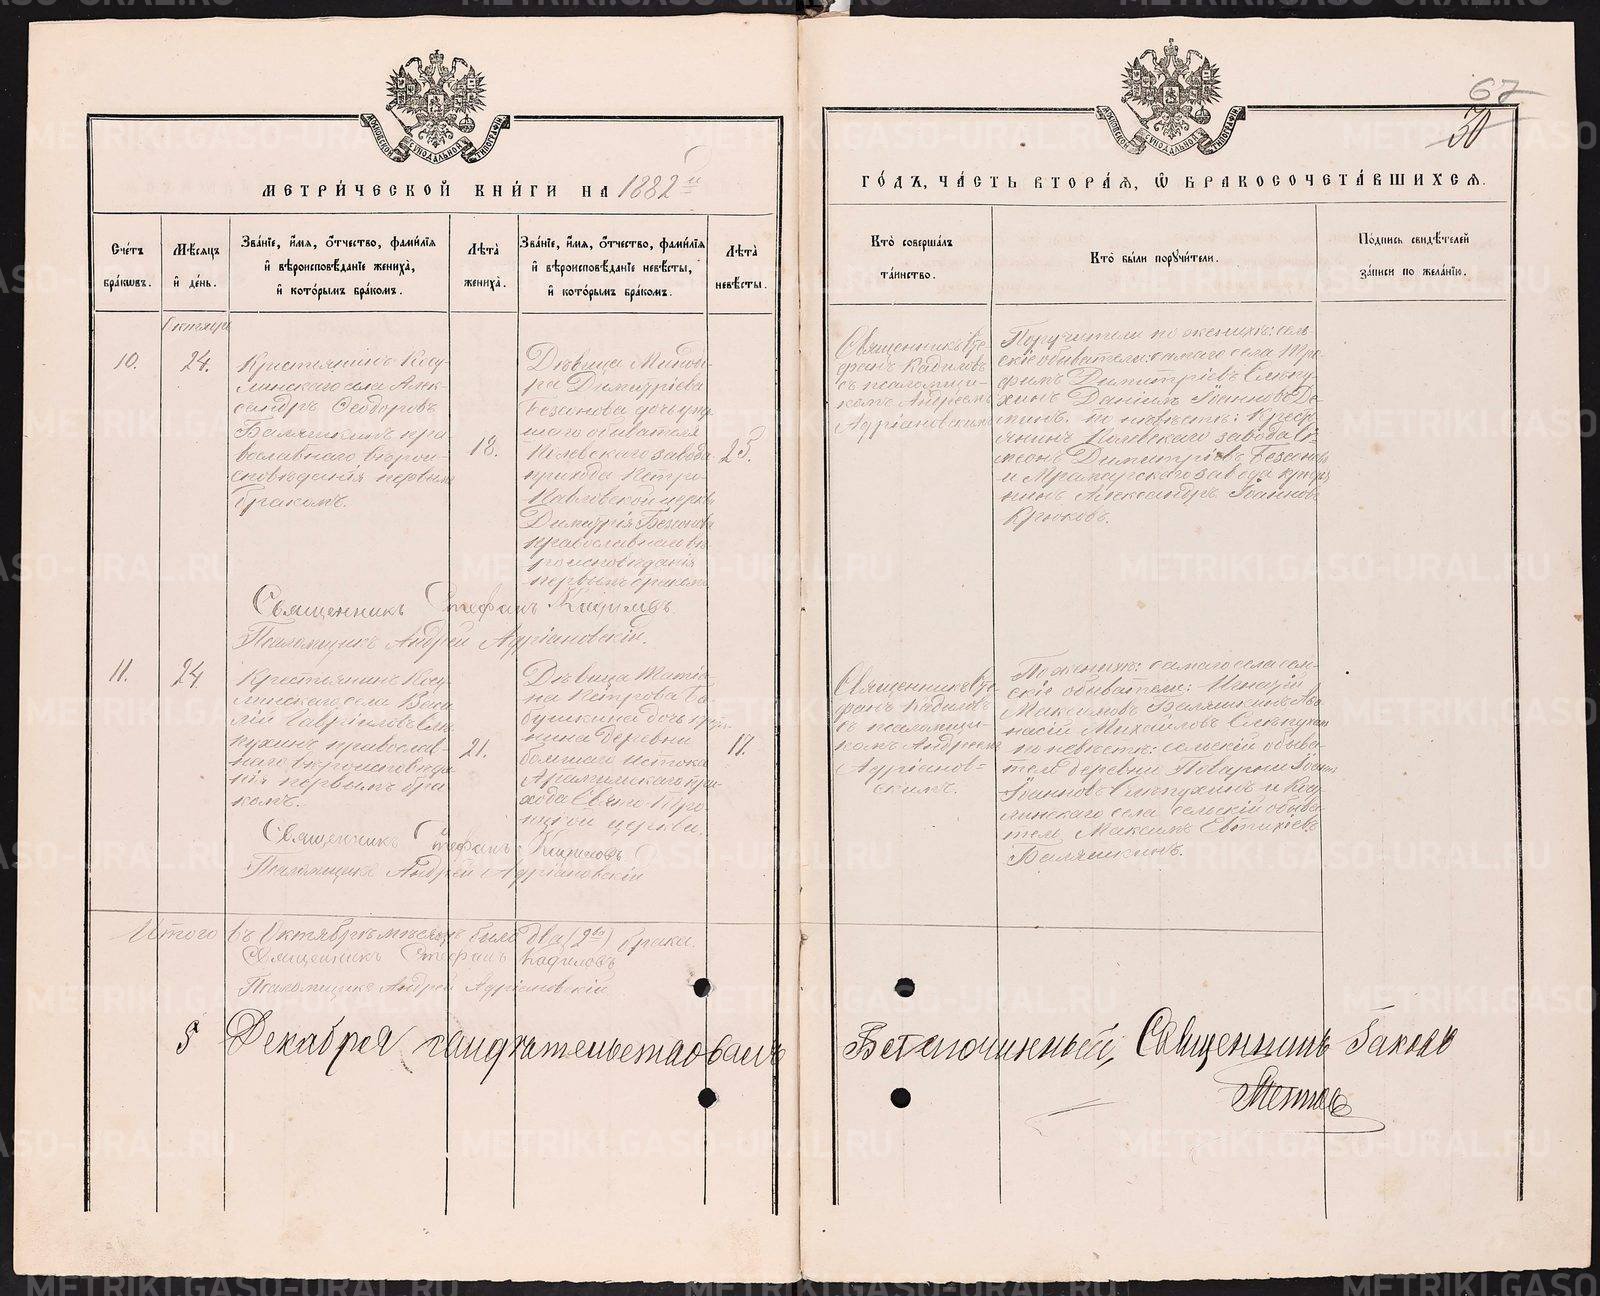 МЕТРИ́ЧЕСКОЙ КНИ́ГИ НА 1882 й
Сче́тъ бра́кωвъ.
Мѣ́сяцъ и҆ де́нь.
Зва́нїе, и҆́мѧ, ѻ҆́тчество, фами́лїѧ и҆ вѣроисповѣ́данїе жениха̀, и҆ кото́рымъ бра́комъ.
Лѣ́та жениха̀.
Зва́нїе, и҆́мѧ, ѻ҆́тчество, фами́лїѧ и҆ вѣроисповѣ́данїе невѣ́сты, и҆ кото́рымъ бра́комъ.
Лѣ́та невѣ́сты.
Октября
10.
24.
Крестьянинъ Косу-
линскаго села Алек-
сандръ Ѳеодоровъ
Баляшкинъ пра-
вославнаго вѣрои-
сповѣданія первымъ
бракомъ.
18.
Дѣвица Минодо-
ра Димитріева
Безсонова дочь
обывателя
Полевскаго завода
прихода Петро-
Павловской церкви
Димитрія Безсонова
православнаго вѣ-
роисповѣданія
первымъ бракомъ
25.
Священникъ Стефанъ Кадиловъ.
Псаломщикъ Андрей Адріановскій.
11.
24.
Крестьянинъ Косу-
линскаго села Васи-
лій Гавріиловъ Слѣ-
пухинъ православ-
наго вѣроисповѣда-
нія первымъ бра-
комъ.
21.
Дѣвица Татіа-
на Петрова Ба-
бушкина дочь крестья-
нина деревни
большаго истока
Арамильскаго при-
хода Свято-Тро-
ицкой церкви.
17.
Священникъ Стефанъ Кадиловъ
Псаломщикъ Андрей Адріановскій
Итого въ Октябрѣ мѣсяцѣ было два (2 ва) брака.
Священникъ Стефанъ Кадиловъ
Псаломщикъ Андрей Адріановскій
5 Декабря свидѣтельствовалъ
67
30
ГО́ДЪ, ЧА́СТЬ ВТОРА́Ѧ, Ѽ БРАКОСОЧЕТА́ВШИХСѦ.
Кто̀ соверша́лъ та́инство.
Кто̀ бы́ли порꙋчи́тели.
По́дпись свидѣ́телей за́писи по жела́нїю.
Священникъ Сте-
фанъ Кадиловъ
съ псаломщи-
комъ Андреемъ
Адріановскимъ
Поручители по женихѣ: сель-
скіе обыватели самаго села Тро-
фимъ Димитріевъ Слѣпу-
хинъ Даніилъ Іоанновъ
по невѣстѣ: Крестья-
янинъ Полевскаго завода Си-
меонъ Димитріевъ Безсоновъ
и Мраморскаго завода крестья-
нинъ Александръ Іоанновъ
Крюковъ.
Священникъ Сте-
фанъ Кадиловъ
съ псаломщи-
комъ Андреемъ
Адріанов-
скимъ.
По женихѣ: самаго села сель-
скіе обыватели: Игнатій
Максимовъ Баляшкинъ Аѳа-
насій Михайловъ Слѣпухинъ
по невѣстѣ: сельскій обыва-
тель деревни Поварни Іоаннъ
Іоанновъ Слѣпухинъ и Косу-
линскаго села сельскій обыва-
тель Максимъ Евтихіевъ
Баляшкинъ.
Благочинный, Священникъ Іаковъ